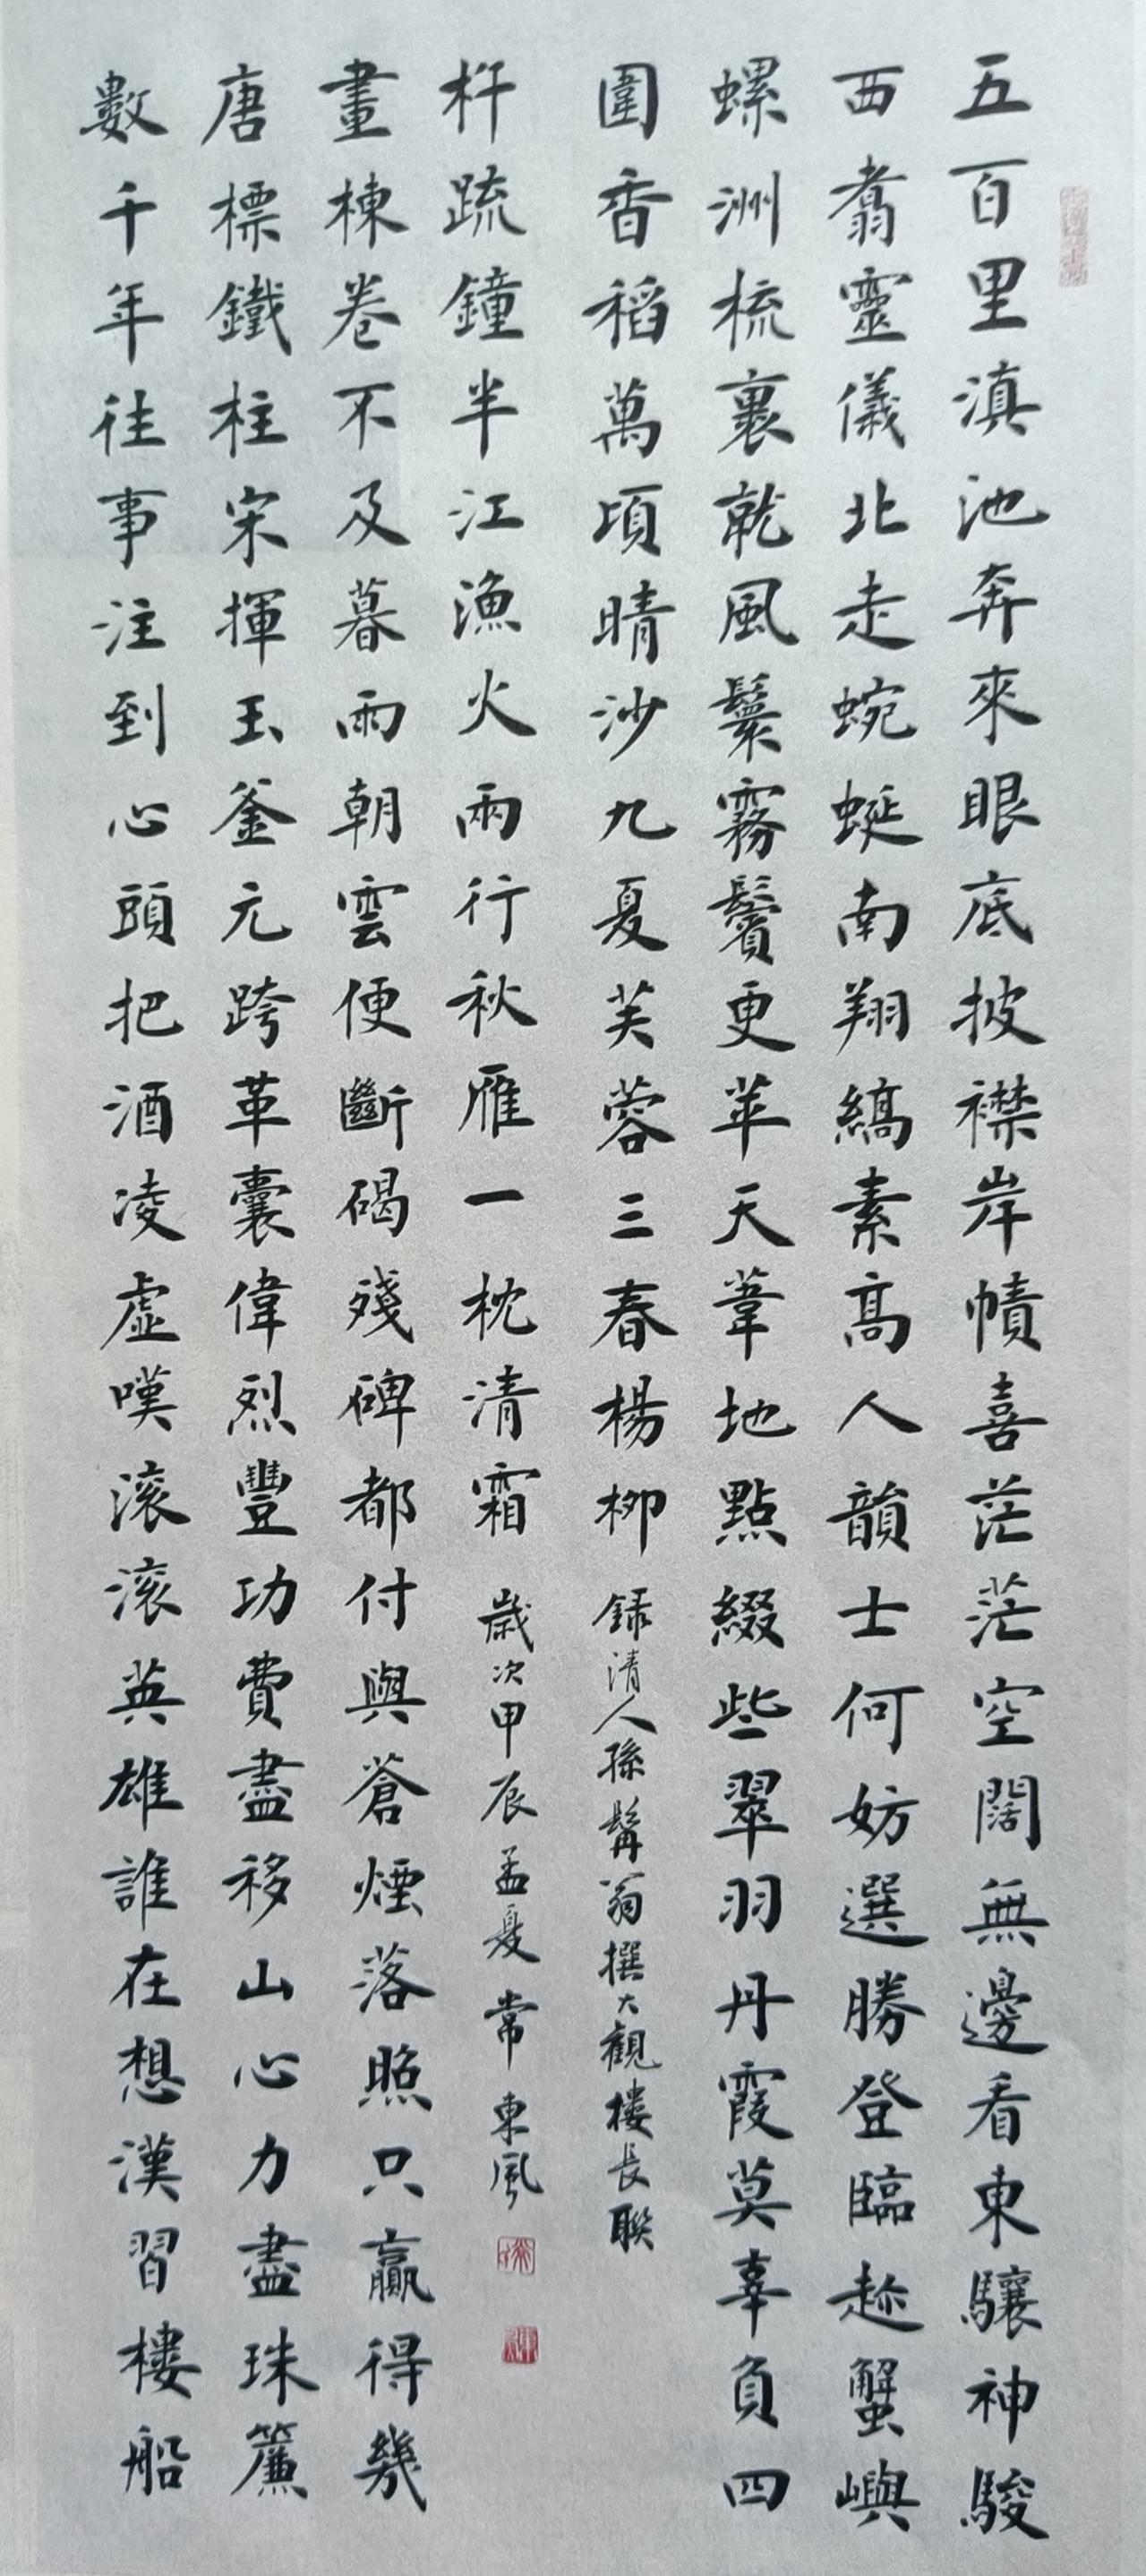 五百里滇池奔來眼底披襟岸幘喜茫茫空闊無邊看東驤神駿
西翥靈儀北走蜿蜒南翔縞素高人韻士何妨選勝登臨趂蟹嶼
螺洲梳裹就風鬟霧鬢更苹天葦地點綴些翠羽丹霞莫辜負四
圍香稻萬頃晴沙九夏芙蓉三春楊柳 錄清人孫髯翁撰大觀樓長聯
數千年往事注到心頭把酒凌虛嘆滾滾英雄誰在想漢習樓船
唐標鐵柱宋揮玉釜元跨革囊偉烈豐功費盡移山心力盡珠簾
畫棟卷不及暮雨朝雲便斷碣殘碑都付與蒼煙落照只贏得幾
杵疏鐘半江漁火兩行秋雁一枕清霜 歲次甲辰孟夏常東風